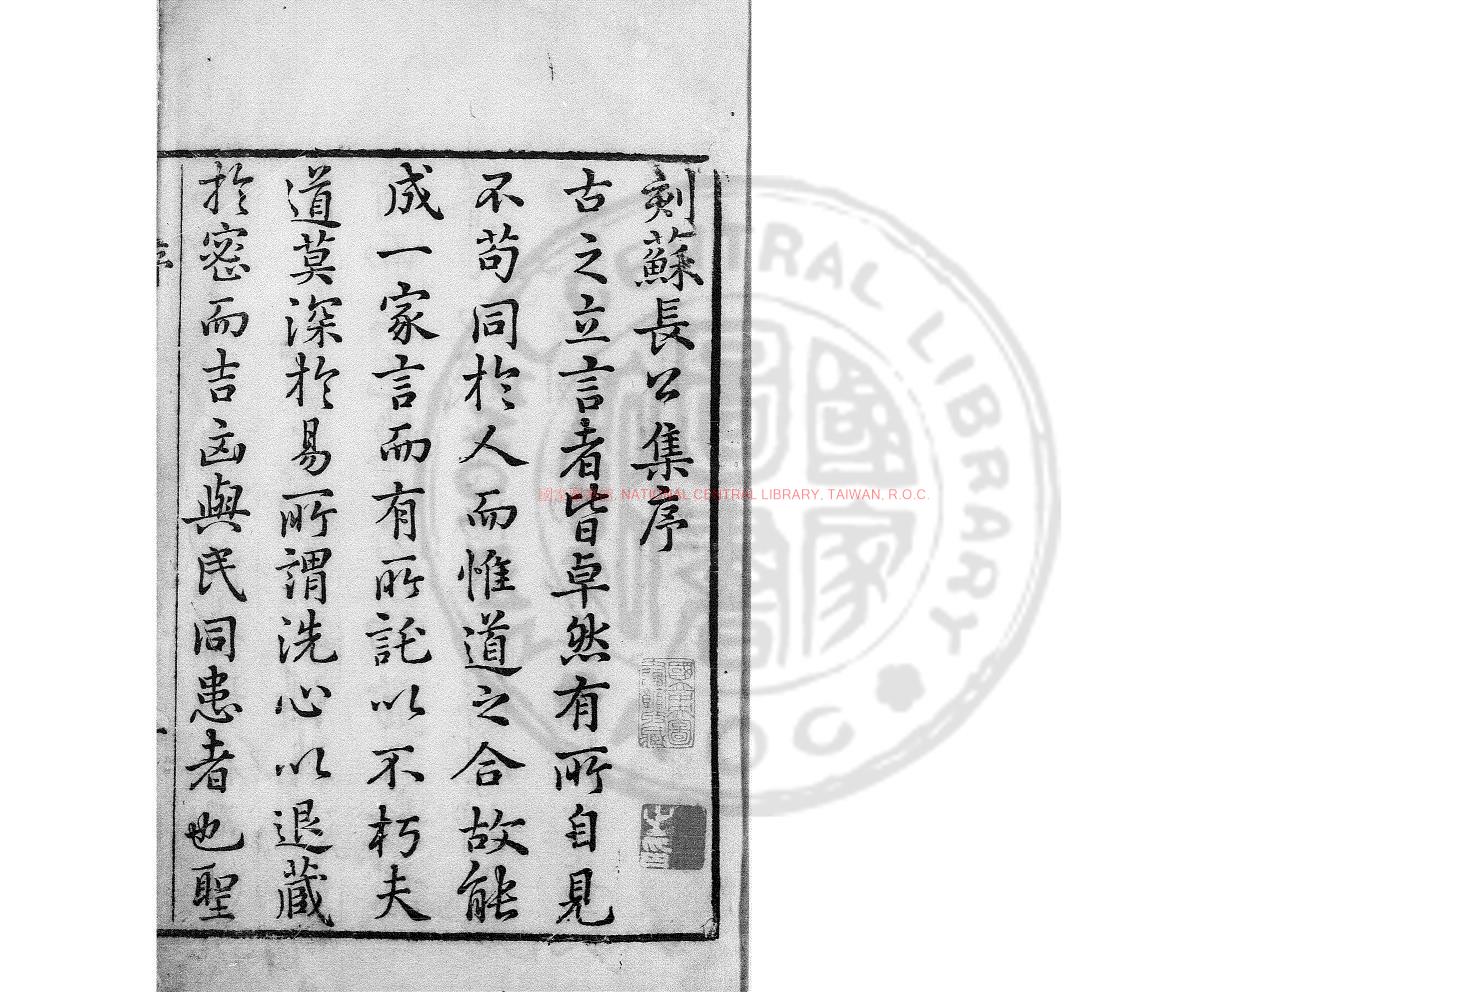 刻蘇長公集序
古之立言者皆卓然有所自見
不苟同於人而惟道之合故能
成一家言而有所託以不朽夫
道莫深於易所謂洗心以退藏
於密而吉凶與民同患者也聖
序
一
國家圖書館 NATIONAL CENTRAL LIBRARY, TAIWAN, R.O.C.